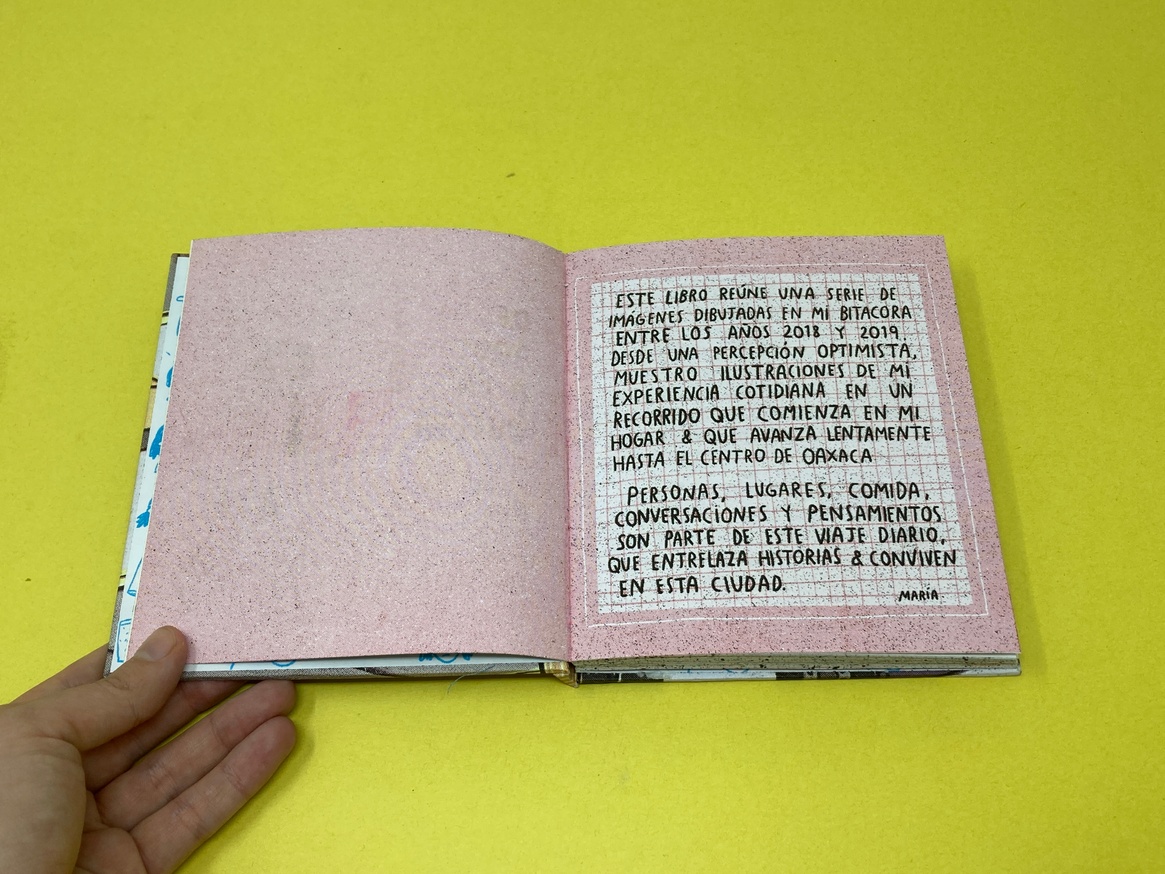 ESTE LIBRO REÚNE UNA SERIE DE
IMÁGENES DIBUJADAS EN MI BITÁCORA
ENTRE LOS AÑOS 2018 Y 2019.
DESDE UNA PERCEPCIÓN OPTIMISTA,
MUESTRO ILUSTRACIONES DE MI
EXPERIENCIA COTIDIANA EN UN
RECORRIDO QUE COMIENZA EN MI
HOGAR & QUE AVANZA LENTAMENTE
HASTA EL CENTRO DE OAXACA
PERSONAS, LUGARES, COMIDA,
CONVERSACIONES Y PENSAMIENTOS
SON PARTE DE ESTE VIAJE DIARIO,
QUE ENTRELAZA HISTORIAS & CONVIVEN
EN ESTA CIUDAD.
MARÍA